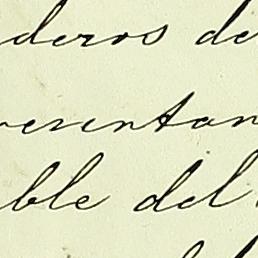 deros de
resentan
ble del